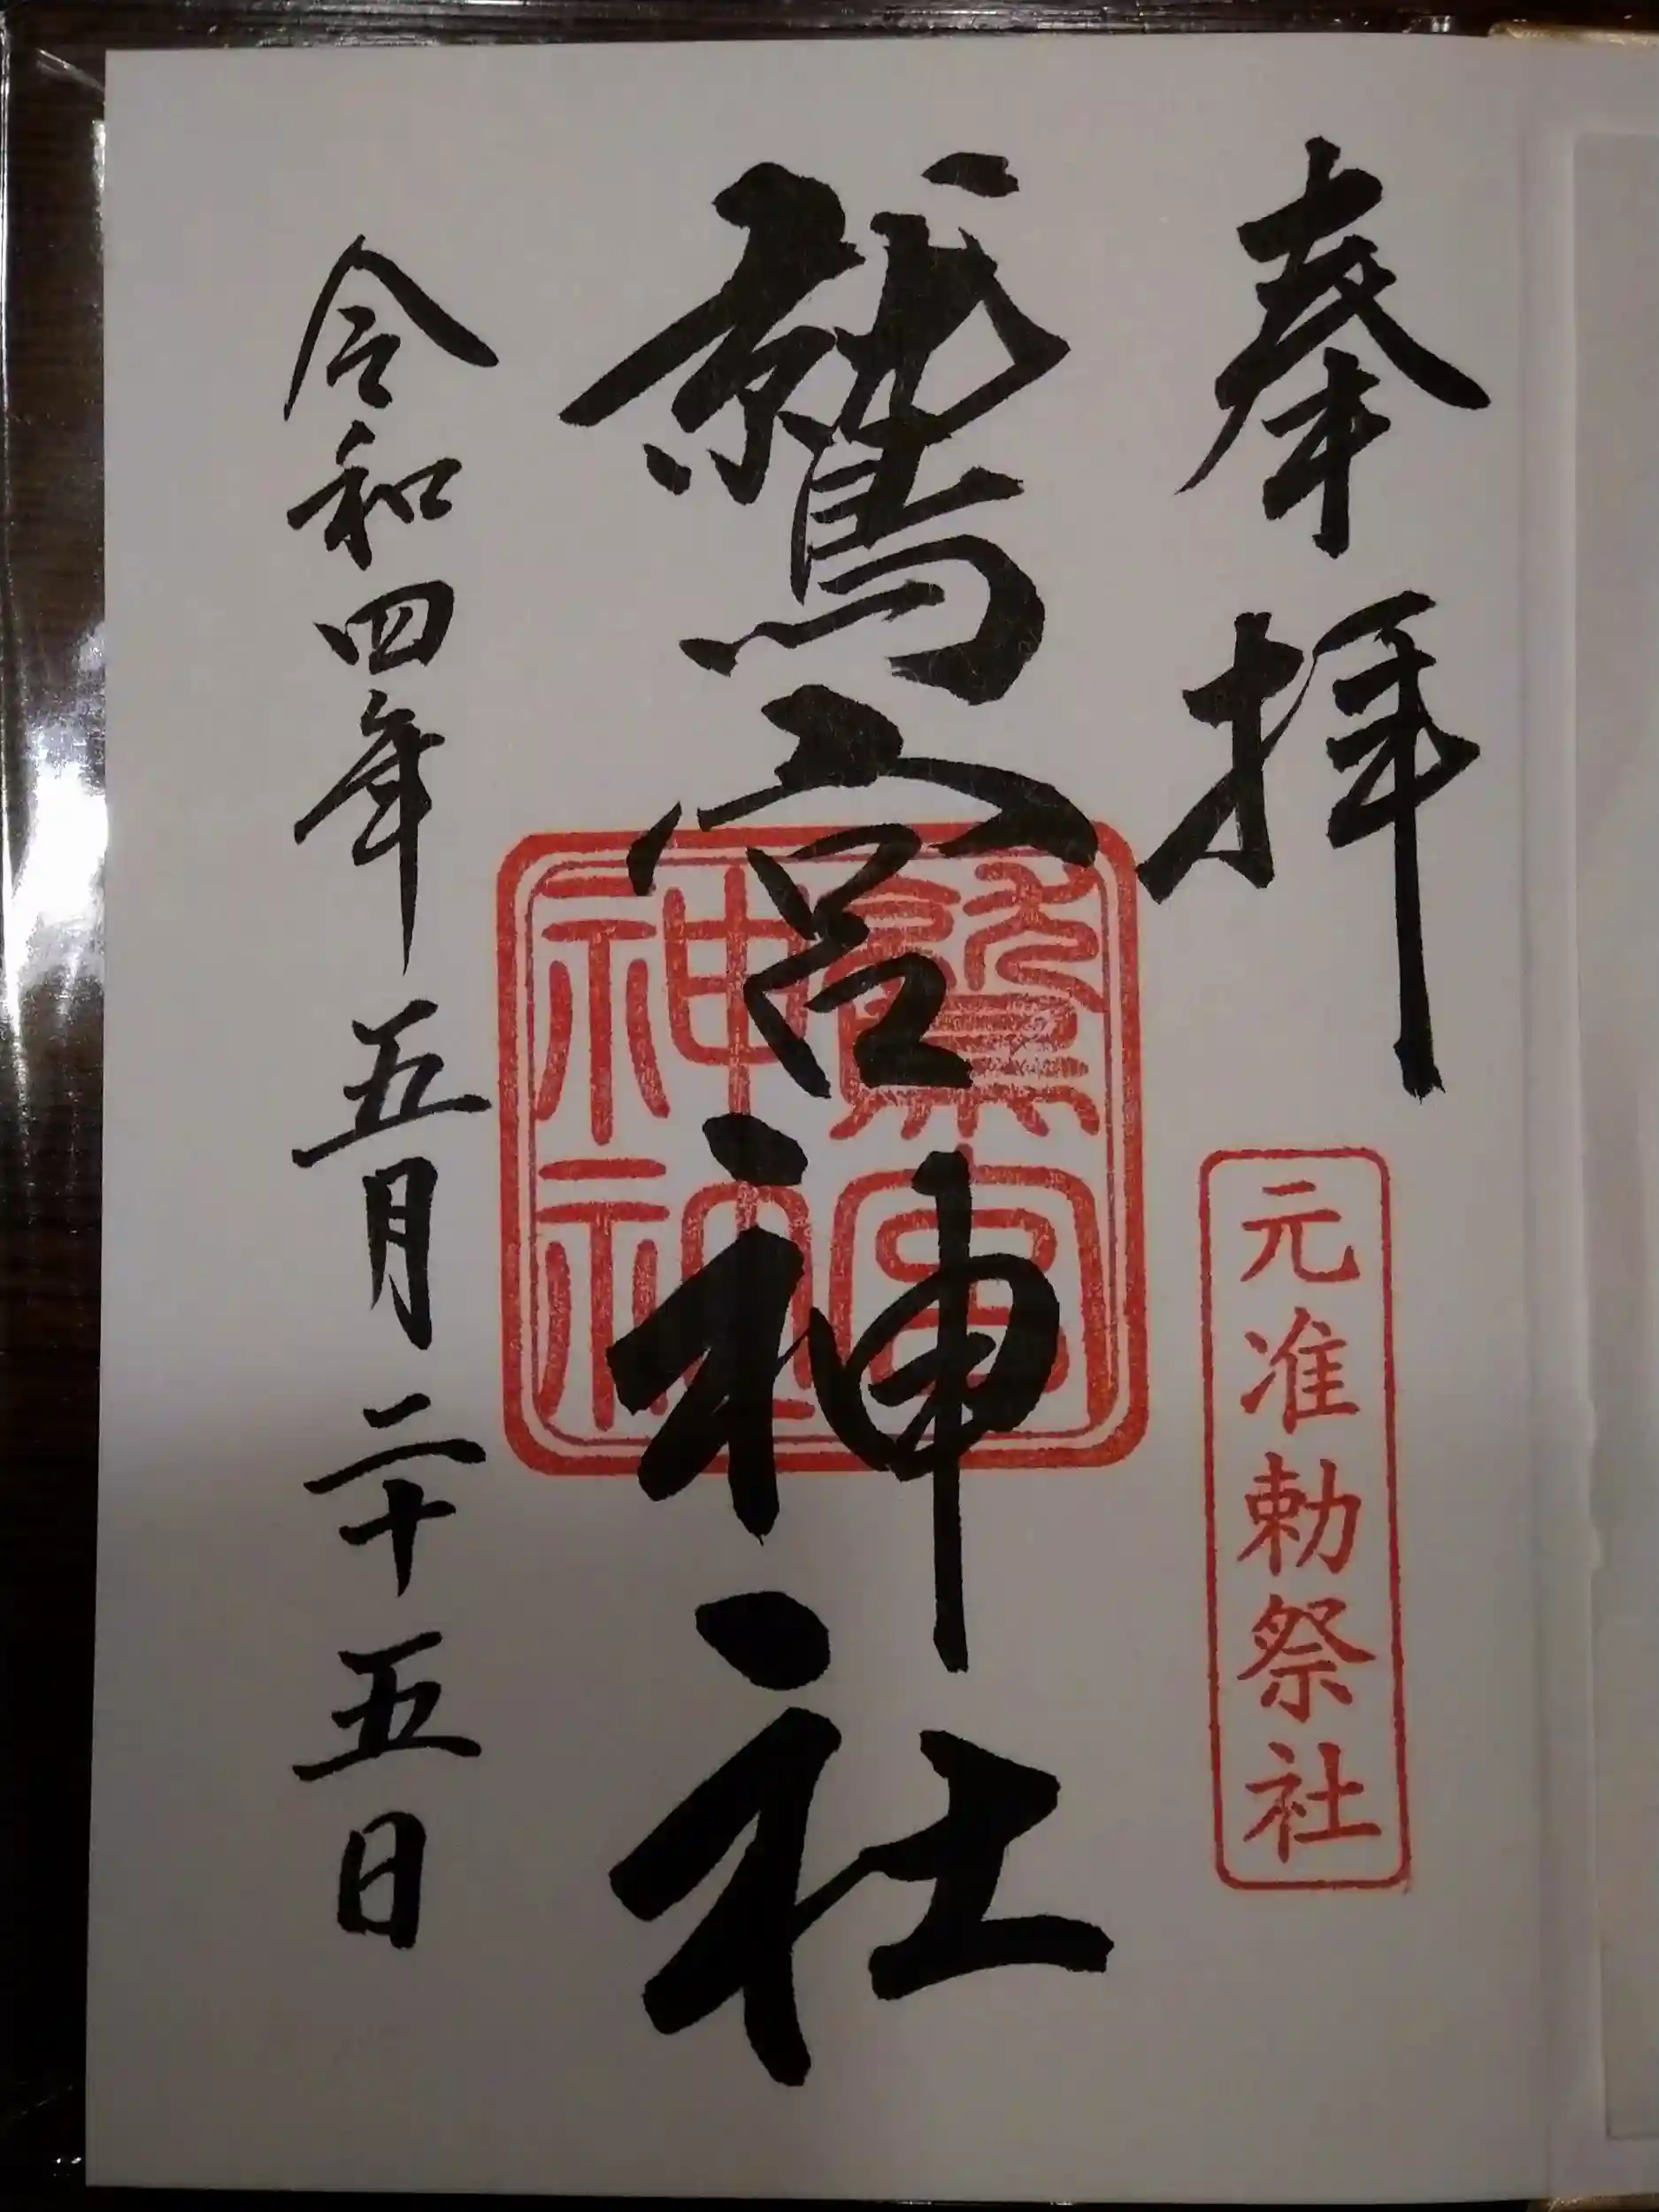 奉拝
元准勅祭社
鷲宮神社
鷲宮
神社
令和四年五月二十五日